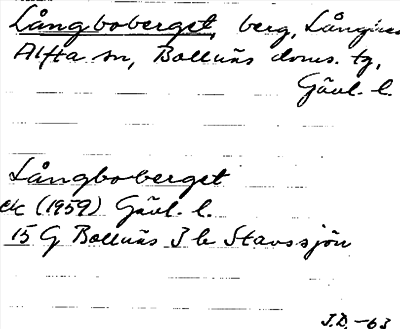 Långboberget, berg, Långnäs
Alfta sn, Bollnäs doms. tg,
Gävl. l.
Långboberget
ek (1959) Gävl. l.
15 G Bollnäs 3 b Stavssjön
J.D. -63